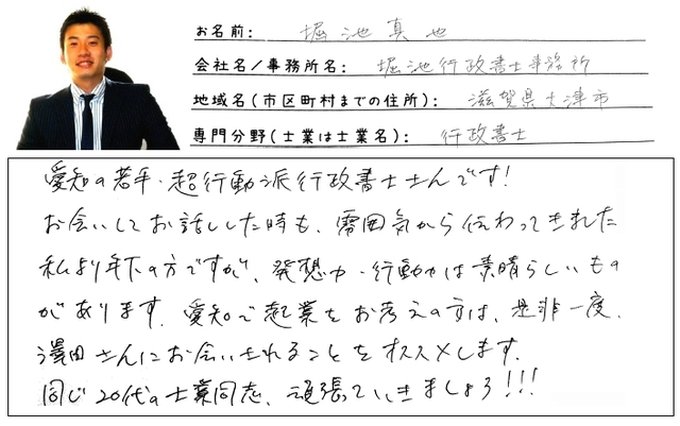 お名前: 堀池真也
会社名/事務所名: 堀池行政書士事務所
地域名(市区町村までの住所): 滋賀県大津市
専門分野(士業は士業名): 行政書士
愛知の若手・超行動派行政書士さんです!
お会いしてお話しした時も、雰囲気から伝わってきました
私より年下の方ですが、発想力・行動力は素晴らしいもの
があります。愛知で起業をお考えの方は、是非一度、
澤田さんにお会いされることをオススメします。
同じ20代の士業同志、頑張っていきましょう!!!